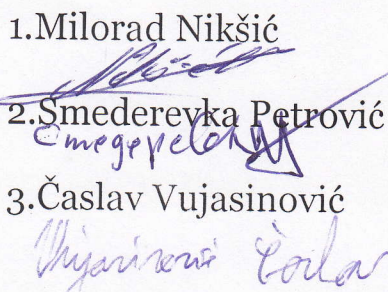 1.Milorad Nikšić
Nikšić
2.Smederevka Petrović
Смедеревка
3.Časlav Vujasinović
Vujasinović Časlav